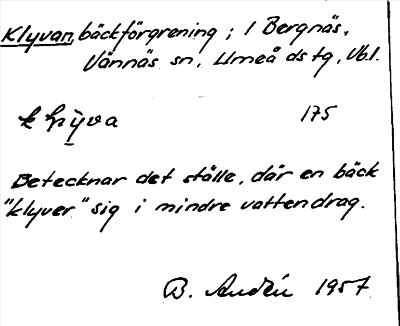 Klyvan, bäckförgrening; I Bergnäs,
Vännäs sn, Umeå ds tg, Vb.l.
175
Betecknar det ställe, där en bäck
"klyver" sig i mindre vattendrag.
B. 1957